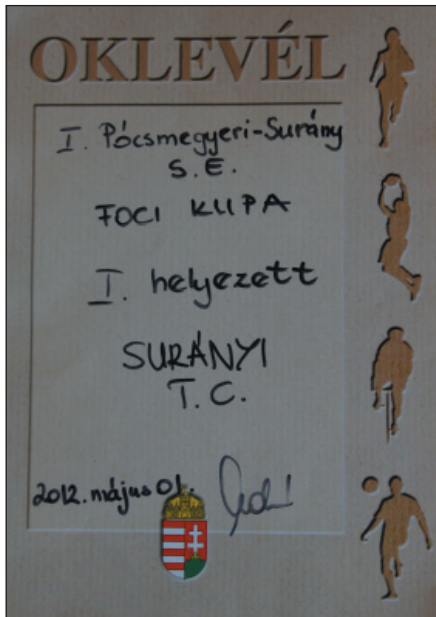 OKLEVÉL
I. Pócsmegyeri-Surány
S.E.
FOCI KUPA
I. helyezett
SURÁNYI
T.C.
2012. május 01.